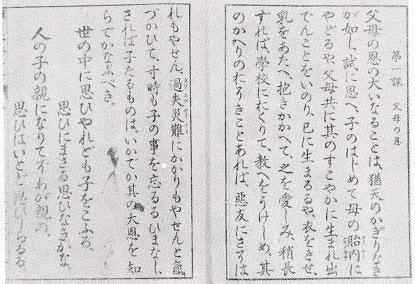 第一課　父母の恩
父母の恩の大いなることは、猶天のかぎりなき
が如し、試に思へ、子のはじめて母の胎内に
やどるや、父母共に其のすこやかに生まれ出
でんことをいのり、已に生まるゝや、衣をきせ、
乳をあたへ、抱きかかへて、之を愛しみ、稍長
ずれば、學校におくりて、教へをうけしめ、其
のかへりのおそきことあれば、悪友にさそは
れもやせん、過失災難にかかりもやせんと氣
づかひて、寸時も子の事を忘るるひまなし、
されば子たるものは、いかでか其の大恩を知
らでかなふべき。
世の中に思ひやれども子をこふる、
思ひにまさる思ひなきかな、
人の子の親になりてぞわが親の、
思ひはいとど思ひしらるる